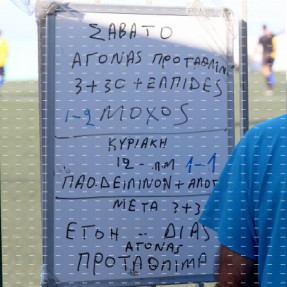 ΣΑΒΑΤΟ
ΑΓΟΝΑΣ ΠΡΟΤΑΘΛΙΜ
3+30 + ΕΛΠΙΔΕΣ
1-2 ΜΟΧΟΣ
ΚΥΡΙΑΚΗ
12-ΠΜ 1-1
ΠΑΟ.ΔΕΙΛΙΝΟΝ + ΑΠΟΓ
ΜΕΤΑ 3+3
ΕΤΟΗ -- ΔΙΑΣ
ΑΓΟΝΑΣ
ΠΡΟΤΑΘΛΙΜΑ